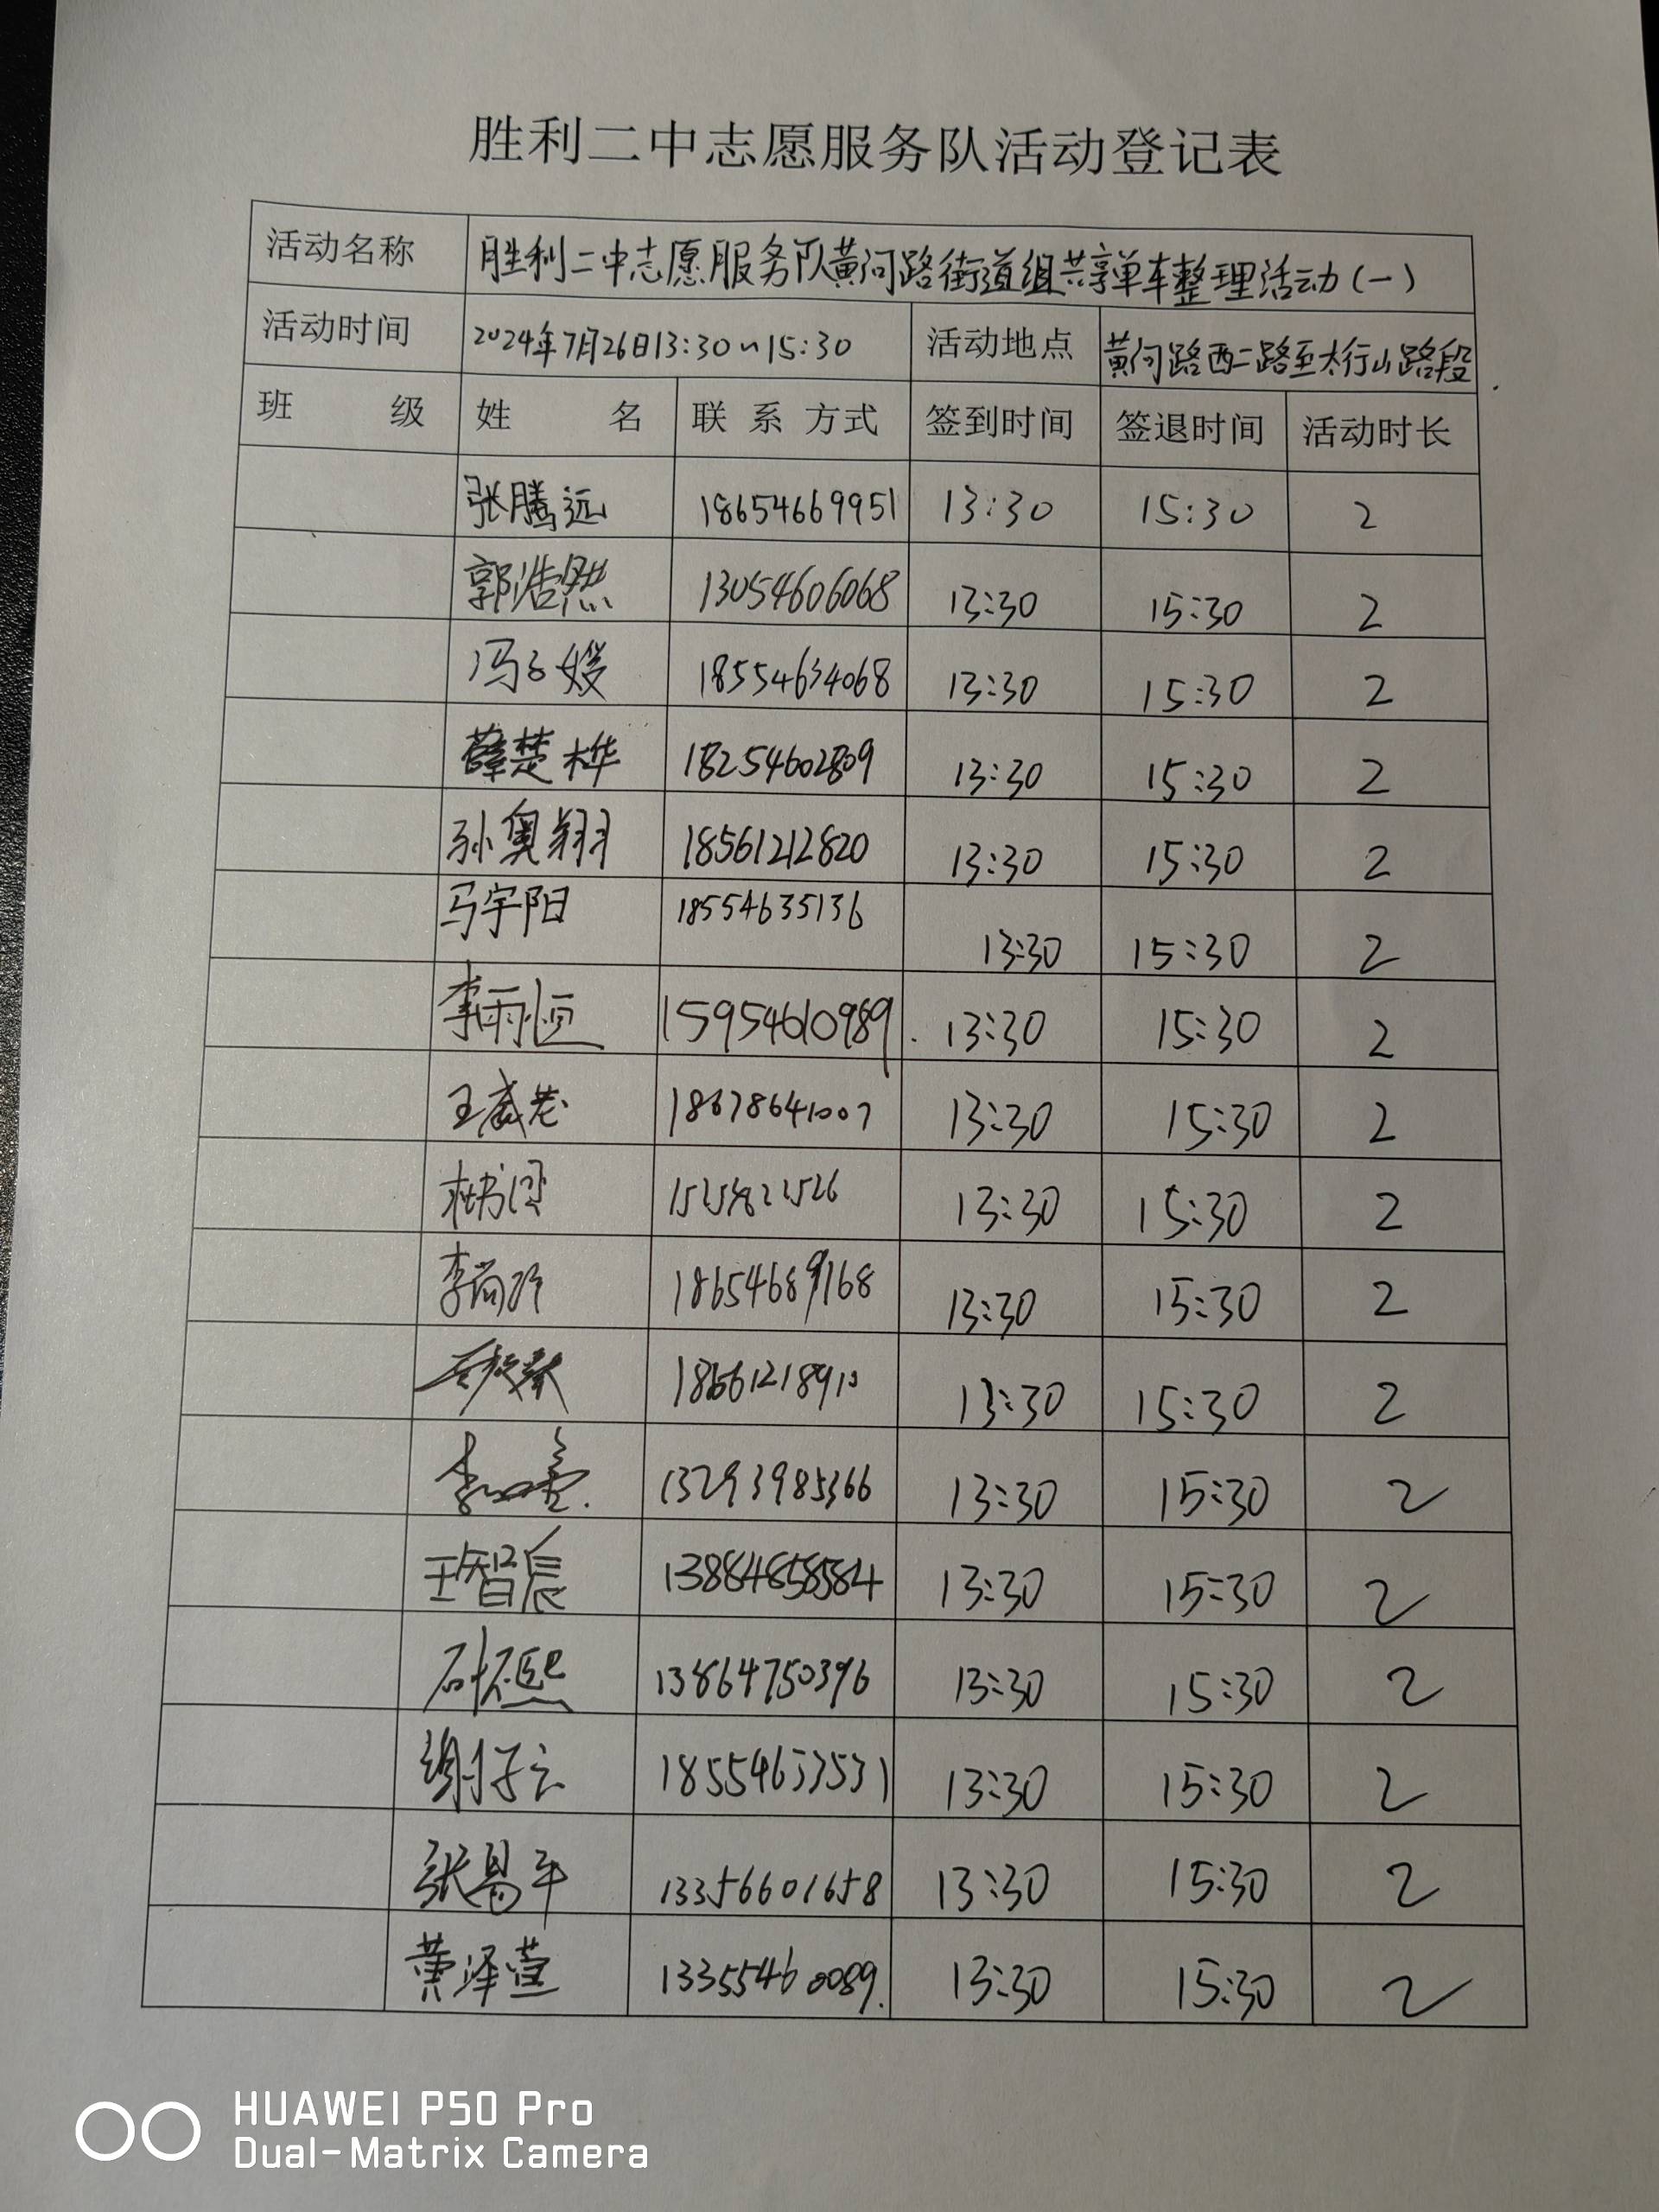 胜利二中志愿服务队活动登记表
活动名称 胜利二中志愿服务队黄河路街道组共享单车整理活动(一)
活动时间 2024年7月26日13:30~15:30 活动地点 黄河路西二路至太行山路段
班 级 姓 名 联系方式 签到时间 签退时间 活动时长
张腾远 18654669951 13:30 15:30 2
郭浩然 13054606068 13:30 15:30 2
冯子媛 18554634068 13:30 15:30 2
薛楚桦 18254602809 13:30 15:30 2
孙奥翔 18561212820 13:30 15:30 2
马宇阳 18554635136 13:30 15:30 2
李雨恒 15954610989 13:30 15:30 2
18678641007 13:30 15:30 2
13:30 15:30 2
18654689168 13:30 15:30 2
13:30 15:30 2
13293985366 13:30 15:30 2
王智辰 13884858584 13:30 15:30 2
13864750396 13:30 15:30 2
18554653531 13:30 15:30 2
13356601658 13:30 15:30 2
黄泽萱 13355460089. 13:30 15:30 2
HUAWEI P50 Pro
Dual-Matrix Camera